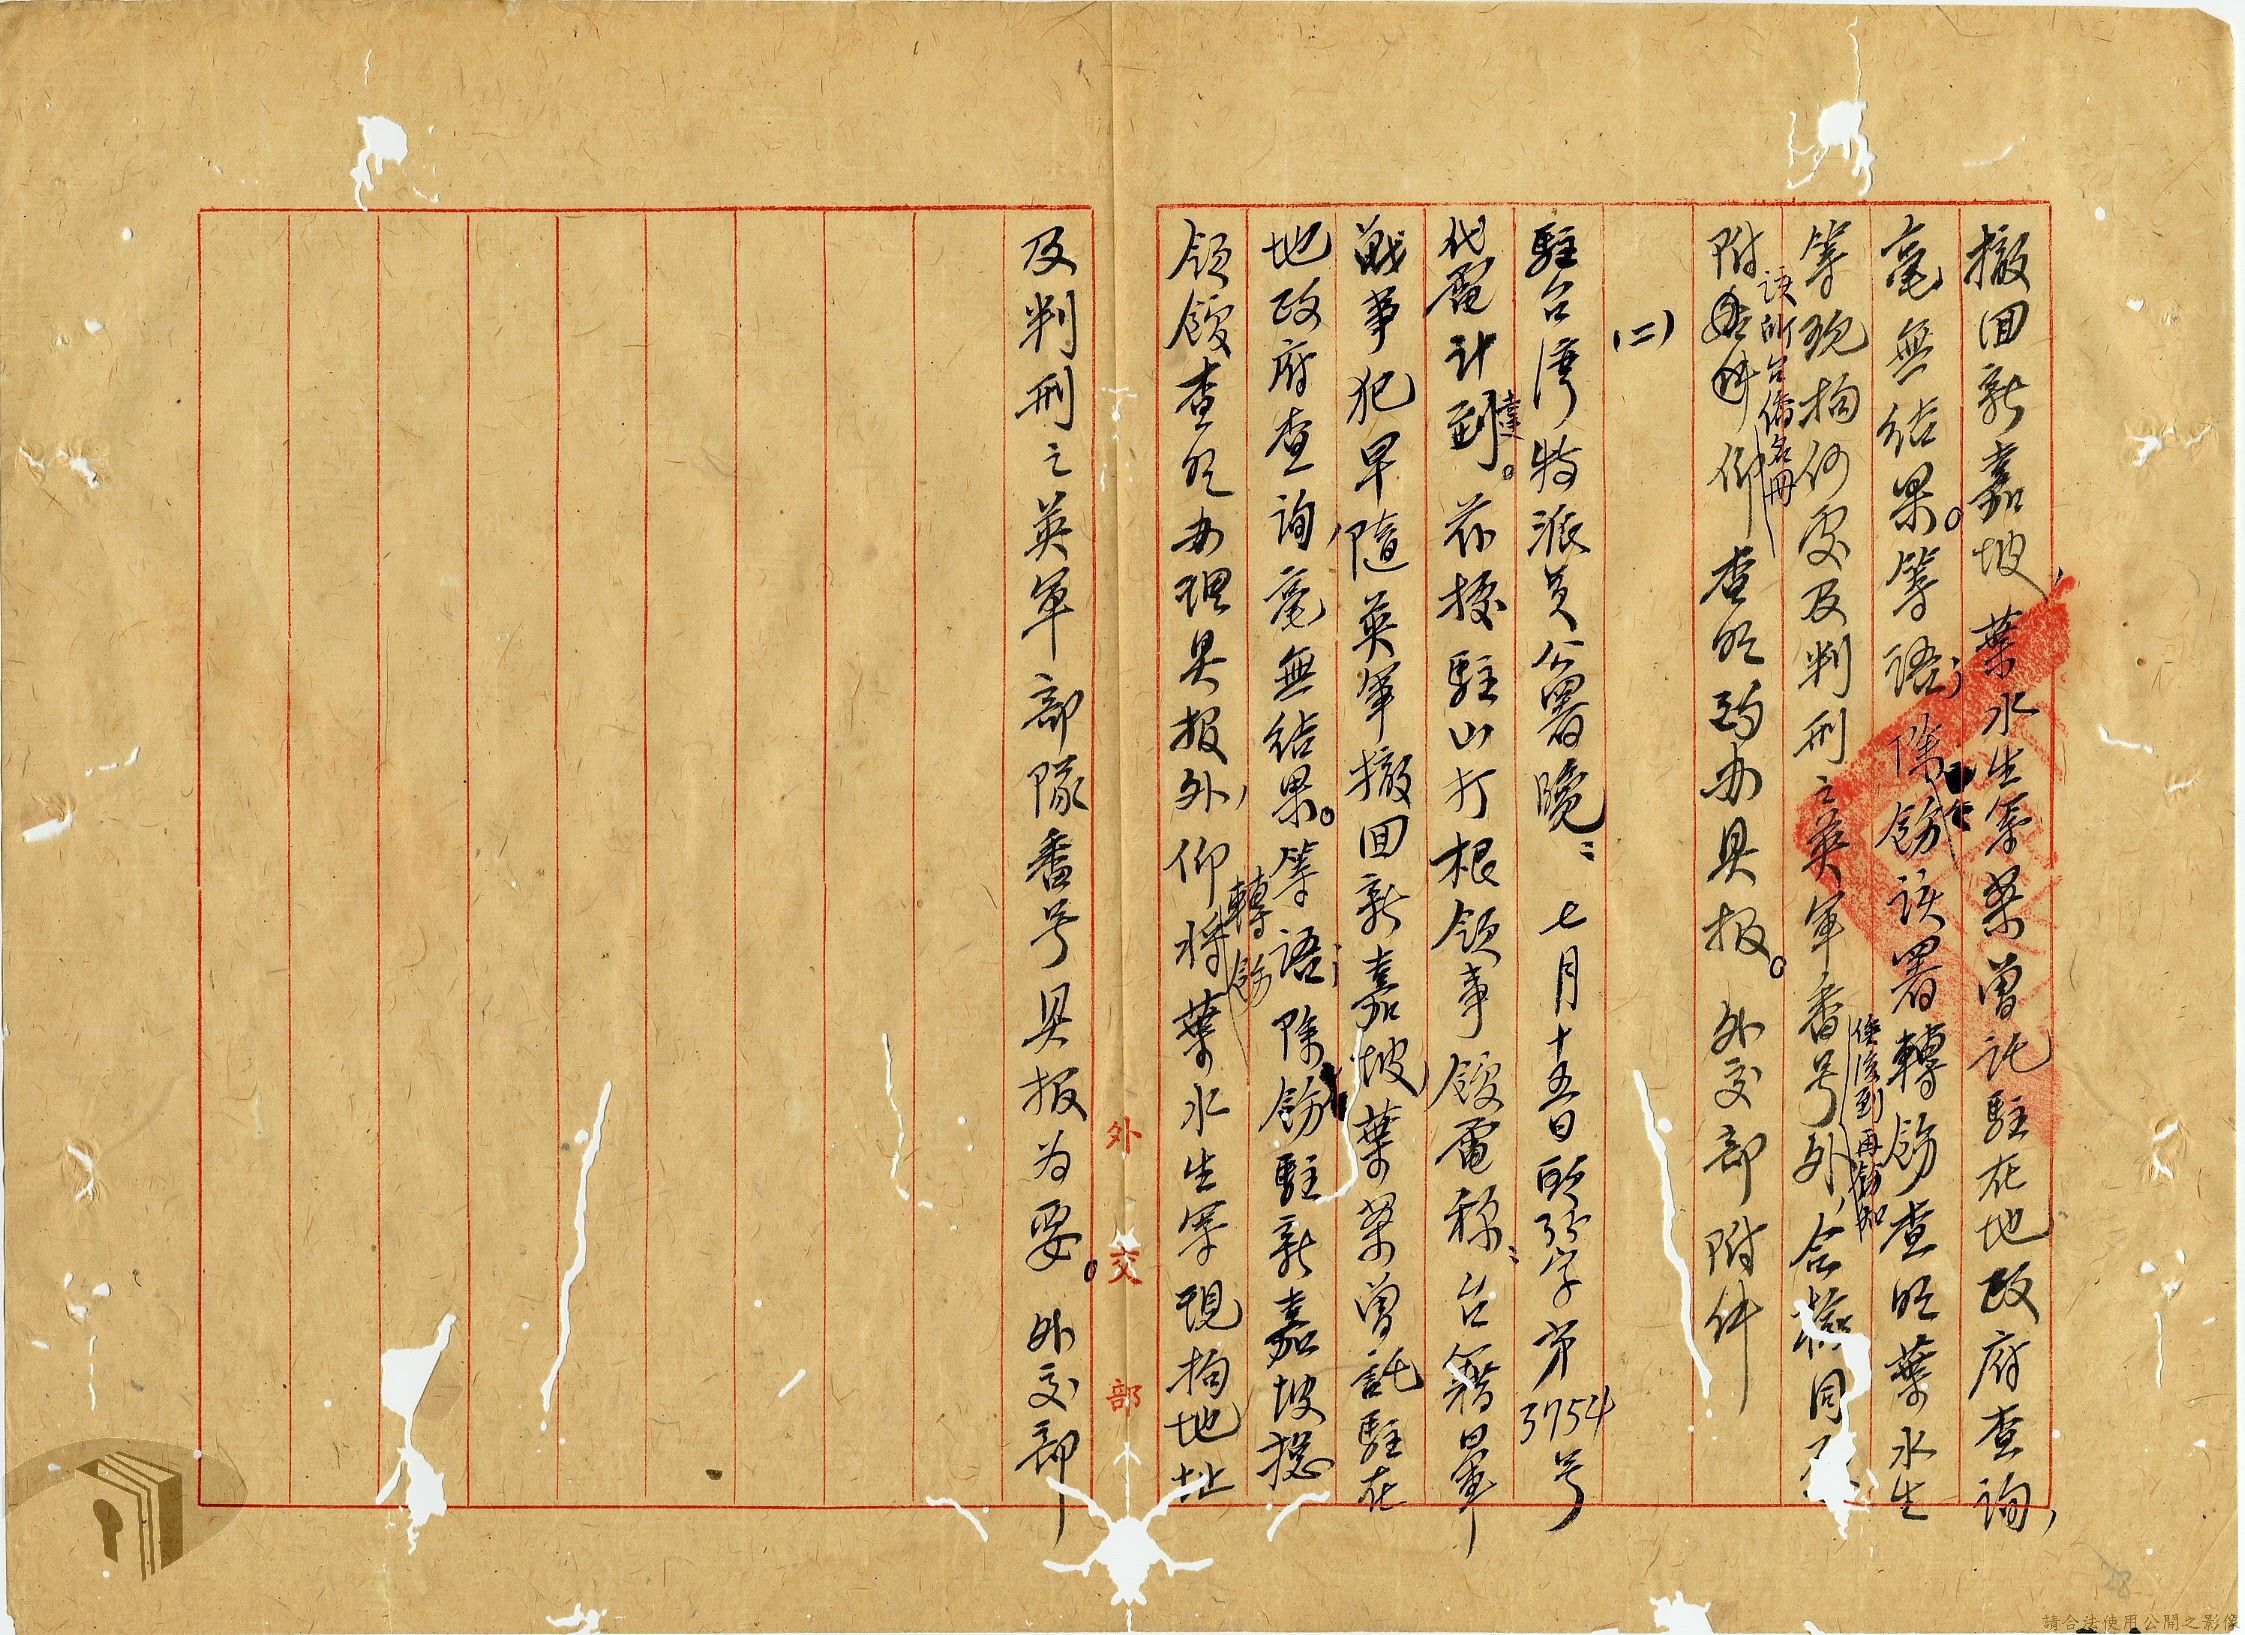 撤回新嘉坡,葉水生等案曾託駐在地政府查詢,
毫無結果。等語;除飭該署轉飭查明葉水生
等現拘何處及判刑之英軍番号外,合檢同
俟復到再飭知
該所台僑名冊
附 仰查明酌办具报。外交部附件
(二)
駐台灣特派員公署覽:七月十五日 字第3754号
代電計達。茲據駐山打根領事館電称:台籍日軍
戰事犯早隨英軍撤回新嘉坡,葉案曾託駐在
地政府查詢,毫無結果。等語;除飭駐新嘉坡總
領館查明办理具报外,仰轉飭將葉水生等現拘地址
及判刑之英軍部隊番号具报为要。外交部
外交部
請合法使用公開之影像